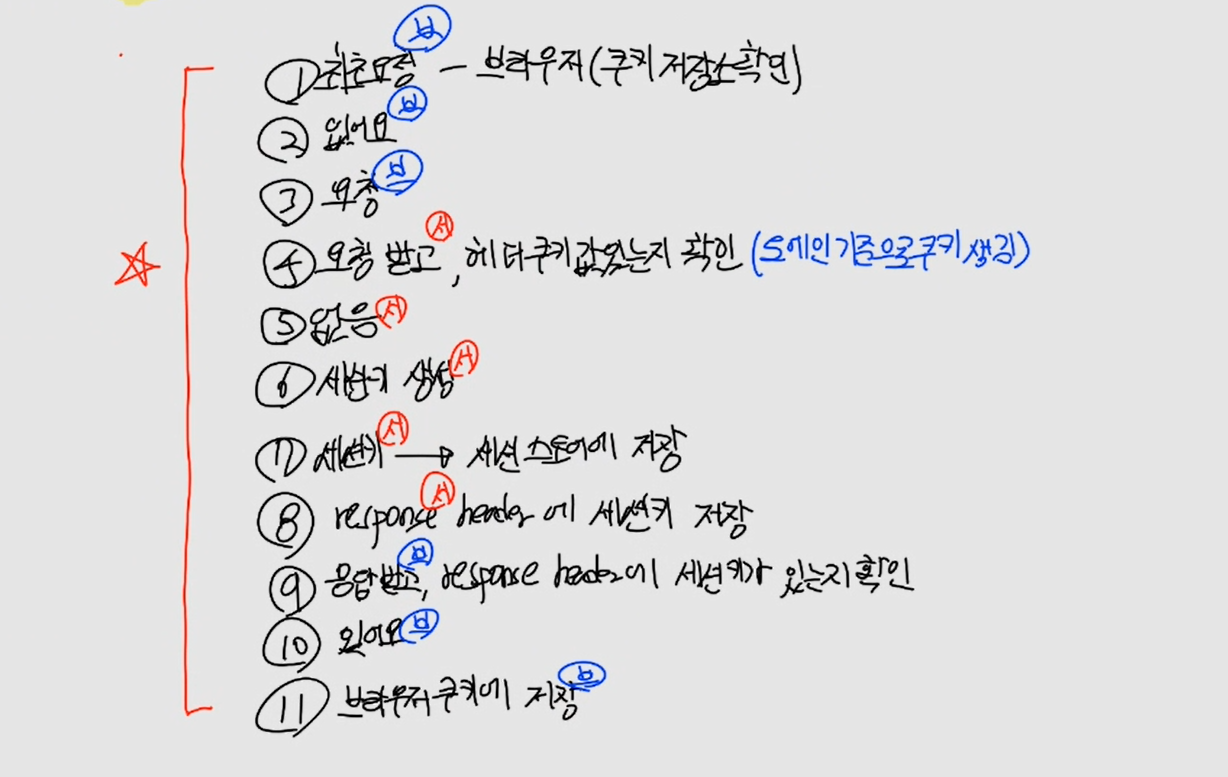 ① 최초요청 브 - 브라우저 (쿠키 저장소 확인)
② 없어요 브
③ 요청 브
④ 요청 받고 서, 헤더 쿠키값 있는지 확인 (도메인 기준으로 쿠키 생김)
⑤ 없음 서
⑥ 세션키 생성 서
⑦ 세션키 서 → 세션 스토어에 저장
⑧ response 서 header에 세션키 저장
⑨ 응답받고 브, response header에 세션키가 있는지 확인
⑩ 있어요 브
⑪ 브라우저 쿠키에 저장 브